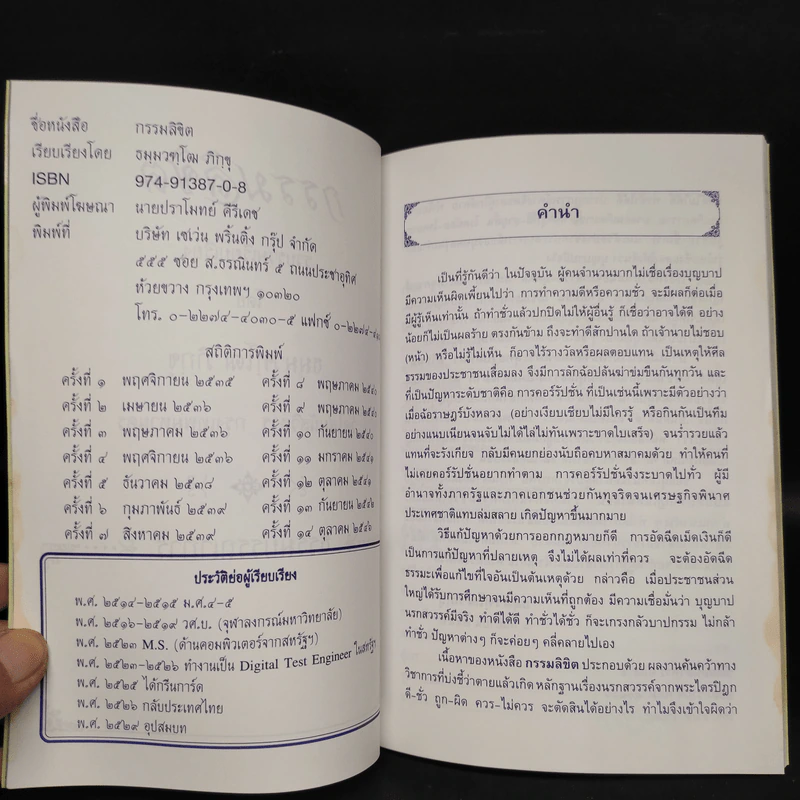 ชื่อหนังสือ กรรมลิขิต
เรียบเรียงโดย ธมฺมวฑฺโฒ ภิกฺขุ
ISBN 974-91387-0-8
ผู้พิมพ์โฆษณา นายปราโมทย์ ศีรีเดช
พิมพ์ที่ บริษัท เซเว่น พริ้นติ้ง กรุ๊ป จำกัด
๕๕๕ ซอย ส.ธรณินทร์ ๕ ถนนประชาอุทิศ
ห้วยขวาง กรุงเทพฯ ๑๐๓๒๐
โทร. ๐-๒๒๗๔-๔๐๓๐-๕ แฟกซ์ ๐-๒๒๗๔-
สถิติการพิมพ์
ครั้งที่ ๑ พฤศจิกายน ๒๕๓๕ ครั้งที่ ๘ พฤษภาคม
ครั้งที่ ๒ เมษายน ๒๕๓๖ ครั้งที่ ๙ พฤษภาคม
ครั้งที่ ๓ พฤษภาคม ๒๕๓๖ ครั้งที่ ๑๐ กันยายน ๒๕๔๐
ครั้งที่ ๔ พฤศจิกายน ๒๕๓๖ ครั้งที่ ๑๑ มกราคม ๒๕๔๑
ครั้งที่ ๕ ธันวาคม ๒๕๓๘ ครั้งที่ ๑๒ ตุลาคม
ครั้งที่ ๖ กุมภาพันธ์ ๒๕๓๙ ครั้งที่ ๑๓ กันยายน
ครั้งที่ ๗ สิงหาคม ๒๕๓๙ ครั้งที่ ๑๔ ตุลาคม ๒๕๔๖
ประวัติย่อผู้เรียบเรียง
พ.ศ. ๒๕๑๔-๒๕๑๕ ม.ศ.๔-๕
พ.ศ. ๒๕๑๖-๒๕๑๙ วศ.บ. (จุฬาลงกรณ์มหาวิทยาลัย)
พ.ศ. ๒๕๒๓ M.S. (ด้านคอมพิวเตอร์จากสหรัฐฯ)
พ.ศ. ๒๕๒๓-๒๕๒๖ ทำงานเป็น Digital Test Engineer ในสหรัฐฯ
พ.ศ. ๒๕๒๕ ได้กรีนการ์ด
พ.ศ. ๒๕๒๖ กลับประเทศไทย
พ.ศ. ๒๕๒๙ อุปสมบท
คำนำ
เป็นที่รู้กันดีว่า ในปัจจุบัน ผู้คนจำนวนมากไม่เชื่อเรื่องบุญบาป
มีความเห็นผิดเพี้ยนไปว่า การทำความดีหรือความชั่ว จะมีผลก็ต่อเมื่อ
มีผู้รู้เห็นเท่านั้น ถ้าทำชั่วแล้วปกปิดไม่ให้ผู้อื่นรู้ ก็เชื่อว่าอาจได้ดี อย่าง
น้อยก็ไม่เป็นผลร้าย ตรงกันข้าม ถึงจะทำดีสักปานใด ถ้าเจ้านายไม่ชอบ
(หน้า) หรือไม่รู้ไม่เห็น ก็อาจไร้รางวัลหรือผลตอบแทน เป็นเหตุให้ศีล
ธรรมของประชาชนเสื่อมลง จึงมีการลักฉ้อปล้นฆ่าข่มขืนกันทุกวัน และ
ที่เป็นปัญหาระดับชาติคือ การคอร์รัปชั่น ที่เป็นเช่นนี้เพราะมีตัวอย่างว่า
เมื่อฉ้อราษฎร์บังหลวง (อย่างเงียบเชียบไม่มีใครรู้ หรือกินกันเป็นทีม
อย่างแนบเนียนจนจับไม่ได้ไล่ไม่ทันเพราะขาดใบเสร็จ) จนร่ำรวยแล้ว
แทนที่จะรังเกียจ กลับมีคนยกย่องนับถือคบหาสมาคมด้วย ทำให้คนที่
ไม่เคยคอร์รัปชั่นอยากทำตาม การคอร์รัปชั่นจึงระบาดไปทั่ว ผู้มี
อำนาจทั้งภาครัฐและภาคเอกชนช่วยกันทุจริตจนเศรษฐกิจพินาศ
ประเทศชาติแทบล่มสลาย เกิดปัญหาขึ้นมากมาย
วิธีแก้ปัญหาด้วยการออกกฎหมายก็ดี การอัดฉีดเม็ดเงินก็ดี
เป็นการแก้ปัญหาที่ปลายเหตุ จึงไม่ได้ผลเท่าที่ควร จะต้องอัดฉีด
ธรรมะเพื่อแก้ไขที่ใจอันเป็นต้นเหตุด้วย กล่าวคือ เมื่อประชาชนส่วน
ใหญ่ได้รับการศึกษาจนมีความเห็นที่ถูกต้อง มีความเชื่อมั่นว่า บุญบาป
นรกสวรรค์มีจริง ทำดีได้ดี ทำชั่วได้ชั่ว ก็จะเกรงกลัวบาปกรรม ไม่กล้า
ทำชั่ว ปัญหาต่างๆ ก็จะค่อยๆ คลี่คลายไปเอง
เนื้อหาของหนังสือ กรรมลิขิต ประกอบด้วย ผลงานค้นคว้าทาง
วิชาการที่บ่งชี้ว่าตายแล้วเกิด หลักฐานเรื่องนรกสวรรค์จากพระไตรปิฎก
ดี-ชั่ว ถูก-ผิด ควร-ไม่ควร จะตัดสินได้อย่างไร ทำไมจึงเข้าใจผิดว่า